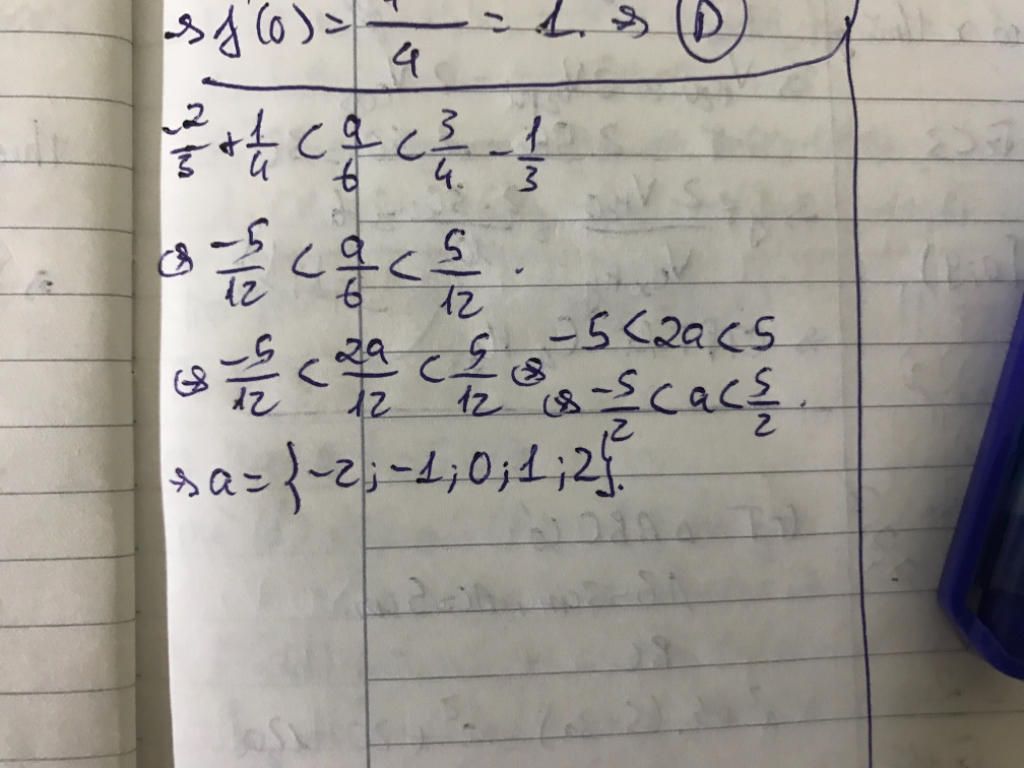 ⇒ f'(0) = /4 = 1. ⇒ D
-2/3 + 1/4 < a/6 < 3/4 - 1/3
⇔ -5/12 < a/6 < 5/12.
⇔ -5/12 < 2a/12 < 5/12 ⇔ -5 < 2a < 5
⇔ -5/2 < a < 5/2.
⇒ a = {-2; -1; 0; 1; 2}.